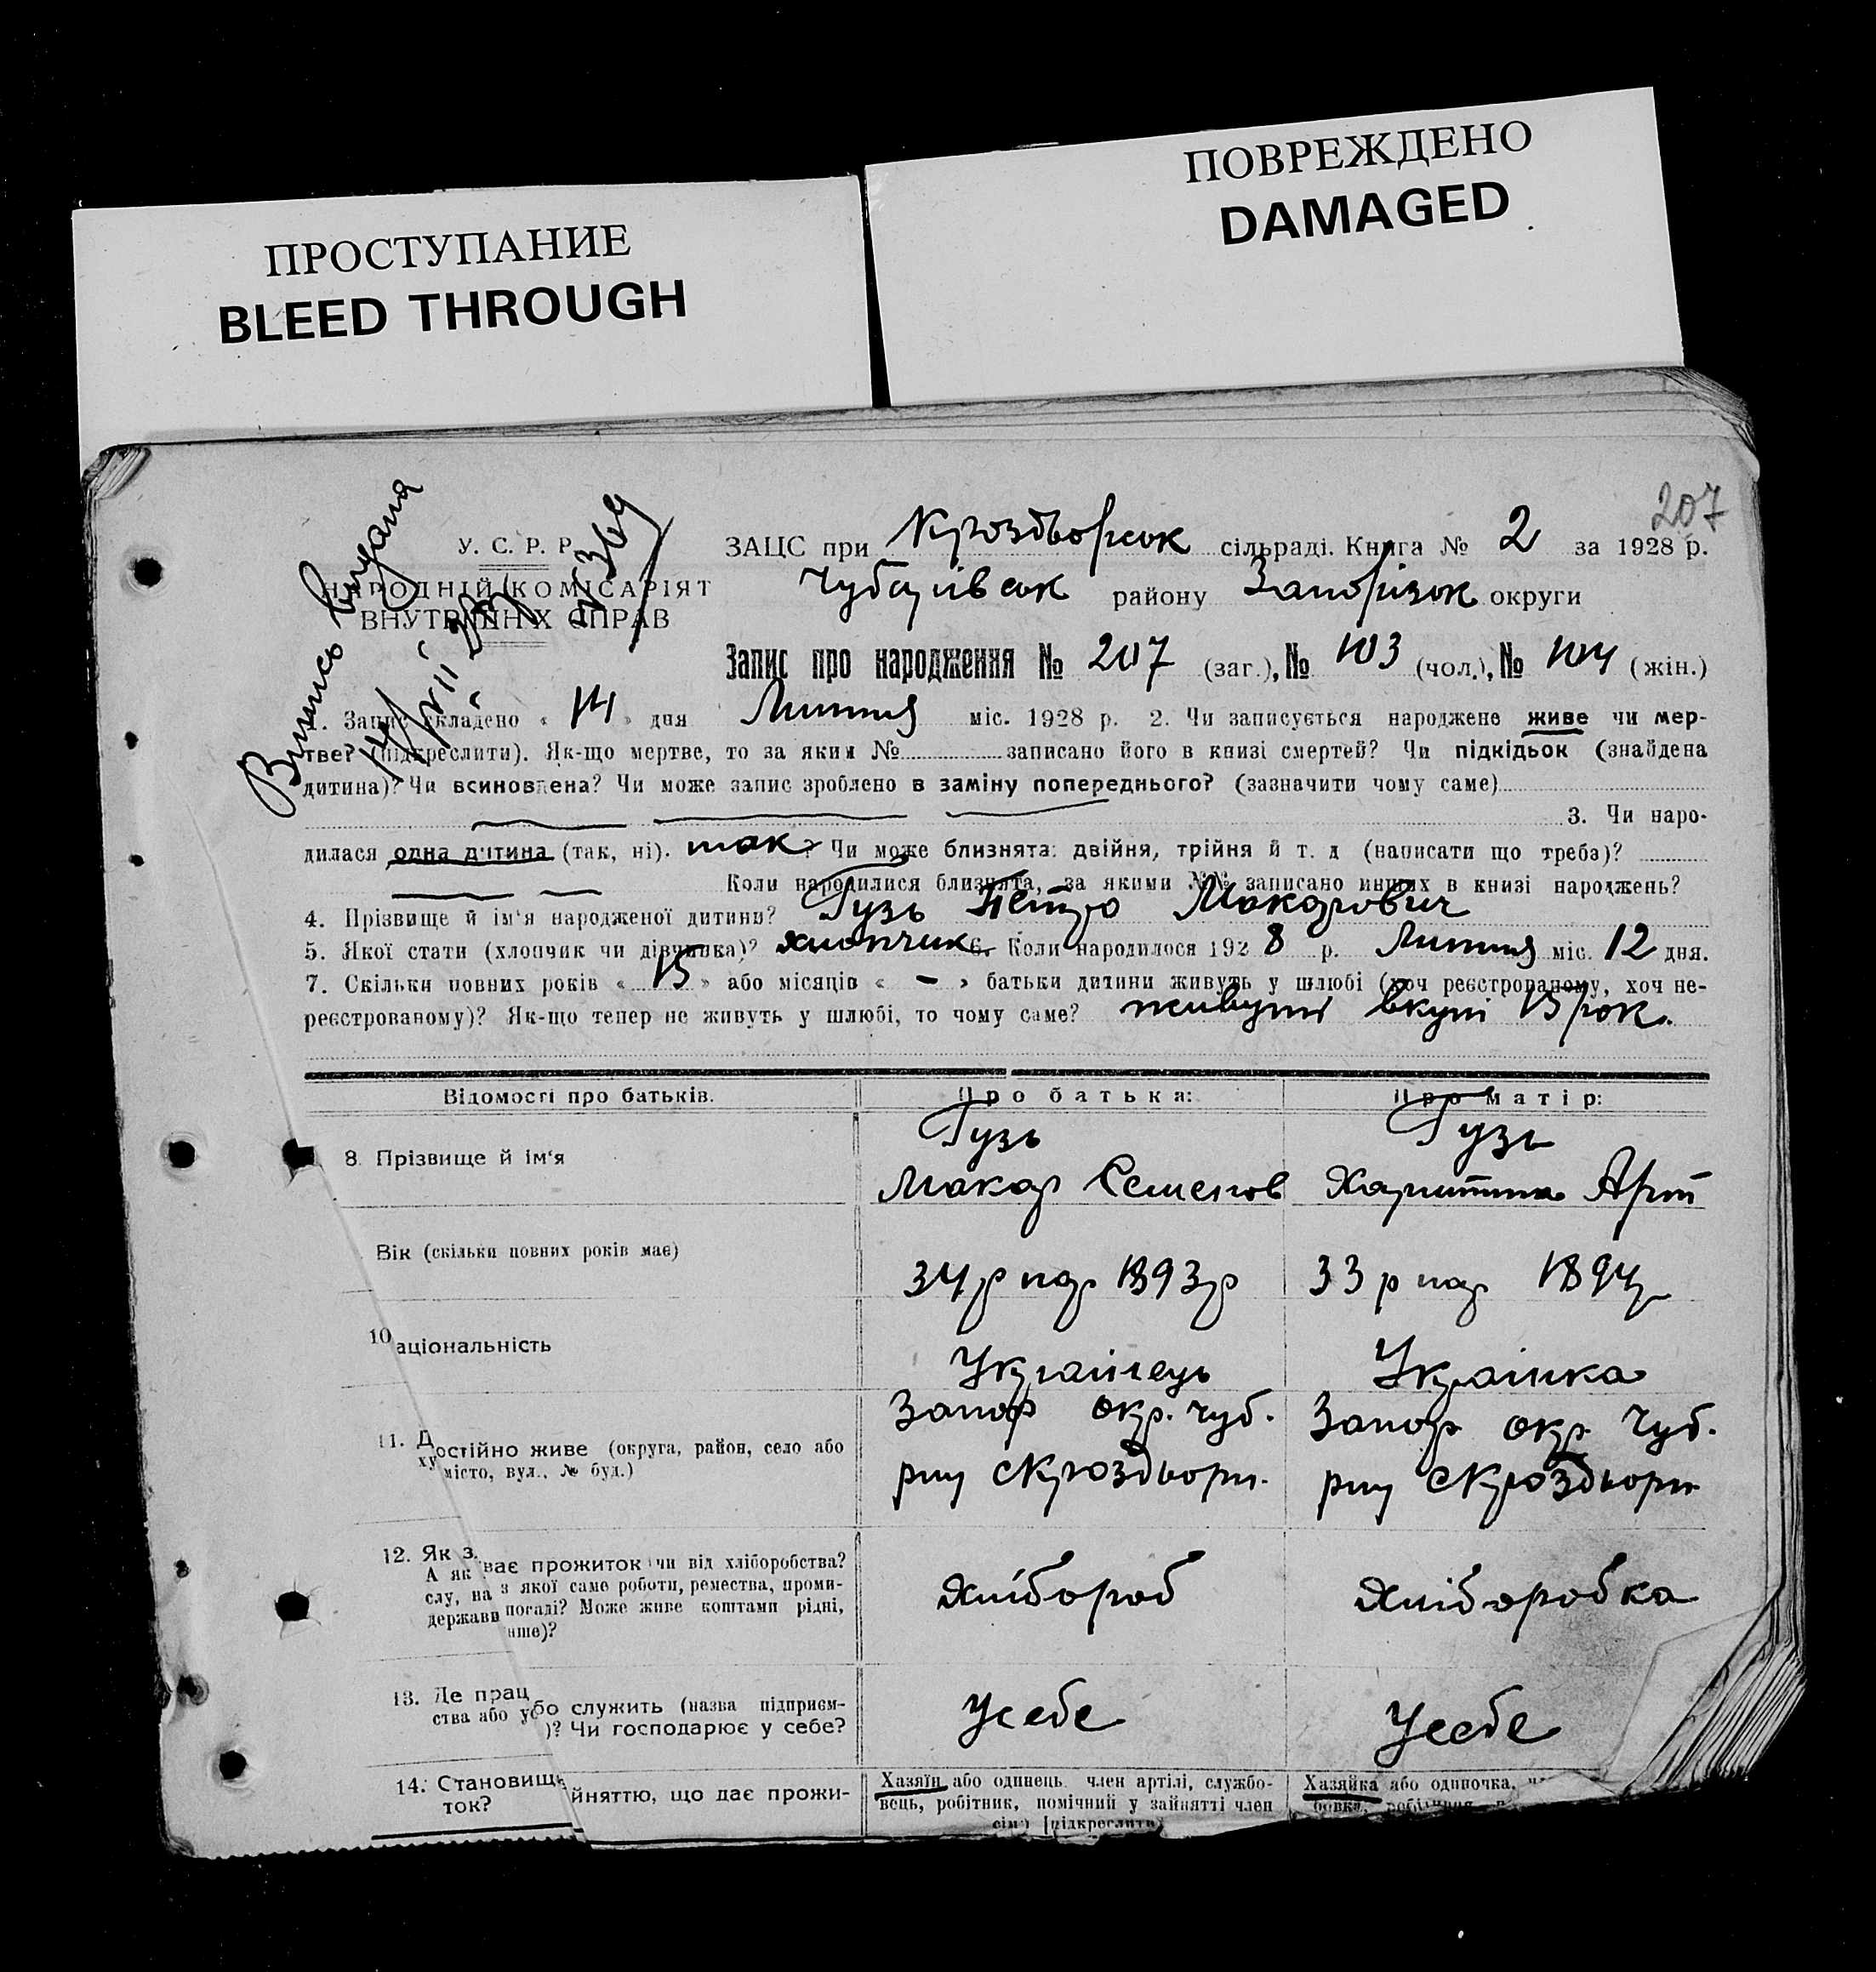 ПОВРЕЖДЕНО
DAMAGED
ПРОСТУПАНИЕ
BLEED THROUGH
207
Випись видана
У. С. Р. Р.
НАРОДНІЙ КОМІСАРІЯТ
ВНУТРІШНІХ СПРАВ
ЗАЦС при сільраді. Книга № 2 за 1928 р.
району Запорізок округи
Запис про народження № 207 (заг.), № 103 (чол.), № 104 (жін.)
1. Запис складено « 14 » дня Липня міс. 1928 р. 2. Чи записується народжене живе чи мер-
тве? (підкреслити). Як-що мертве, то за яким № записано його в книзі смертей? Чи підкідьок (знайдена
дитина)? Чи всиновлена? Чи може запис зроблено в заміну попереднього? (зазначити чому саме)
3. Чи наро-
дилася одна дитина (так, ні). так? Чи може близнята: двійня, трійня й т. д (написати що треба)?
Коли народилися близнята, за якими №№ записано инших в книзі народжень?
4. Прізвище й ім'я народженої дитини? Гузь Петро Макарович
5. Якої стати (хлопчик чи дівчинка)? хлопчик 6. Коли народилося 1928 р. Липня міс. 12 дня.
7. Скільки повних років « 15 » або місяців « – » батьки дитини живуть у шлюбі (хоч реєстрованому, хоч не-
реєстрованому)? Як-що тепер не живуть у шлюбі, то чому саме? живуть вкупі 15 рок.
Відомості про батьків. Про батька: Про матір:
8. Прізвище й ім'я
Гузь Гузь
Макар Семенов Харитина Арт
Вік (скільки повних років має)
34 р нар 1893 р 33 р нар 1894 р
10 аціональність
Українець Українка
Запор окр. Чуб. Запор окр Чуб.
11. Д остійно живе (округа, район, село або
ху місто, вул., № буд.)
12. Як з. ває прожиток чи від хліборобства?
А як з якої саме роботи, ремества, проми-
слу, на посаді? Може живе коштами рідні,
держави нше)?
Хлібороб Хліборобка
13. Де прац бо служить (назва підприєм-
ства або у )? Чи господарює у себе?
У себе У себе
14. Становищ йняттю, що дає прожи-
ток?
Хазяїн або одинець член артілі, службо-
вець, робітник, помічний у зайнятті член
сім'ї [підкреслити]
Хазяйка або одиночка,